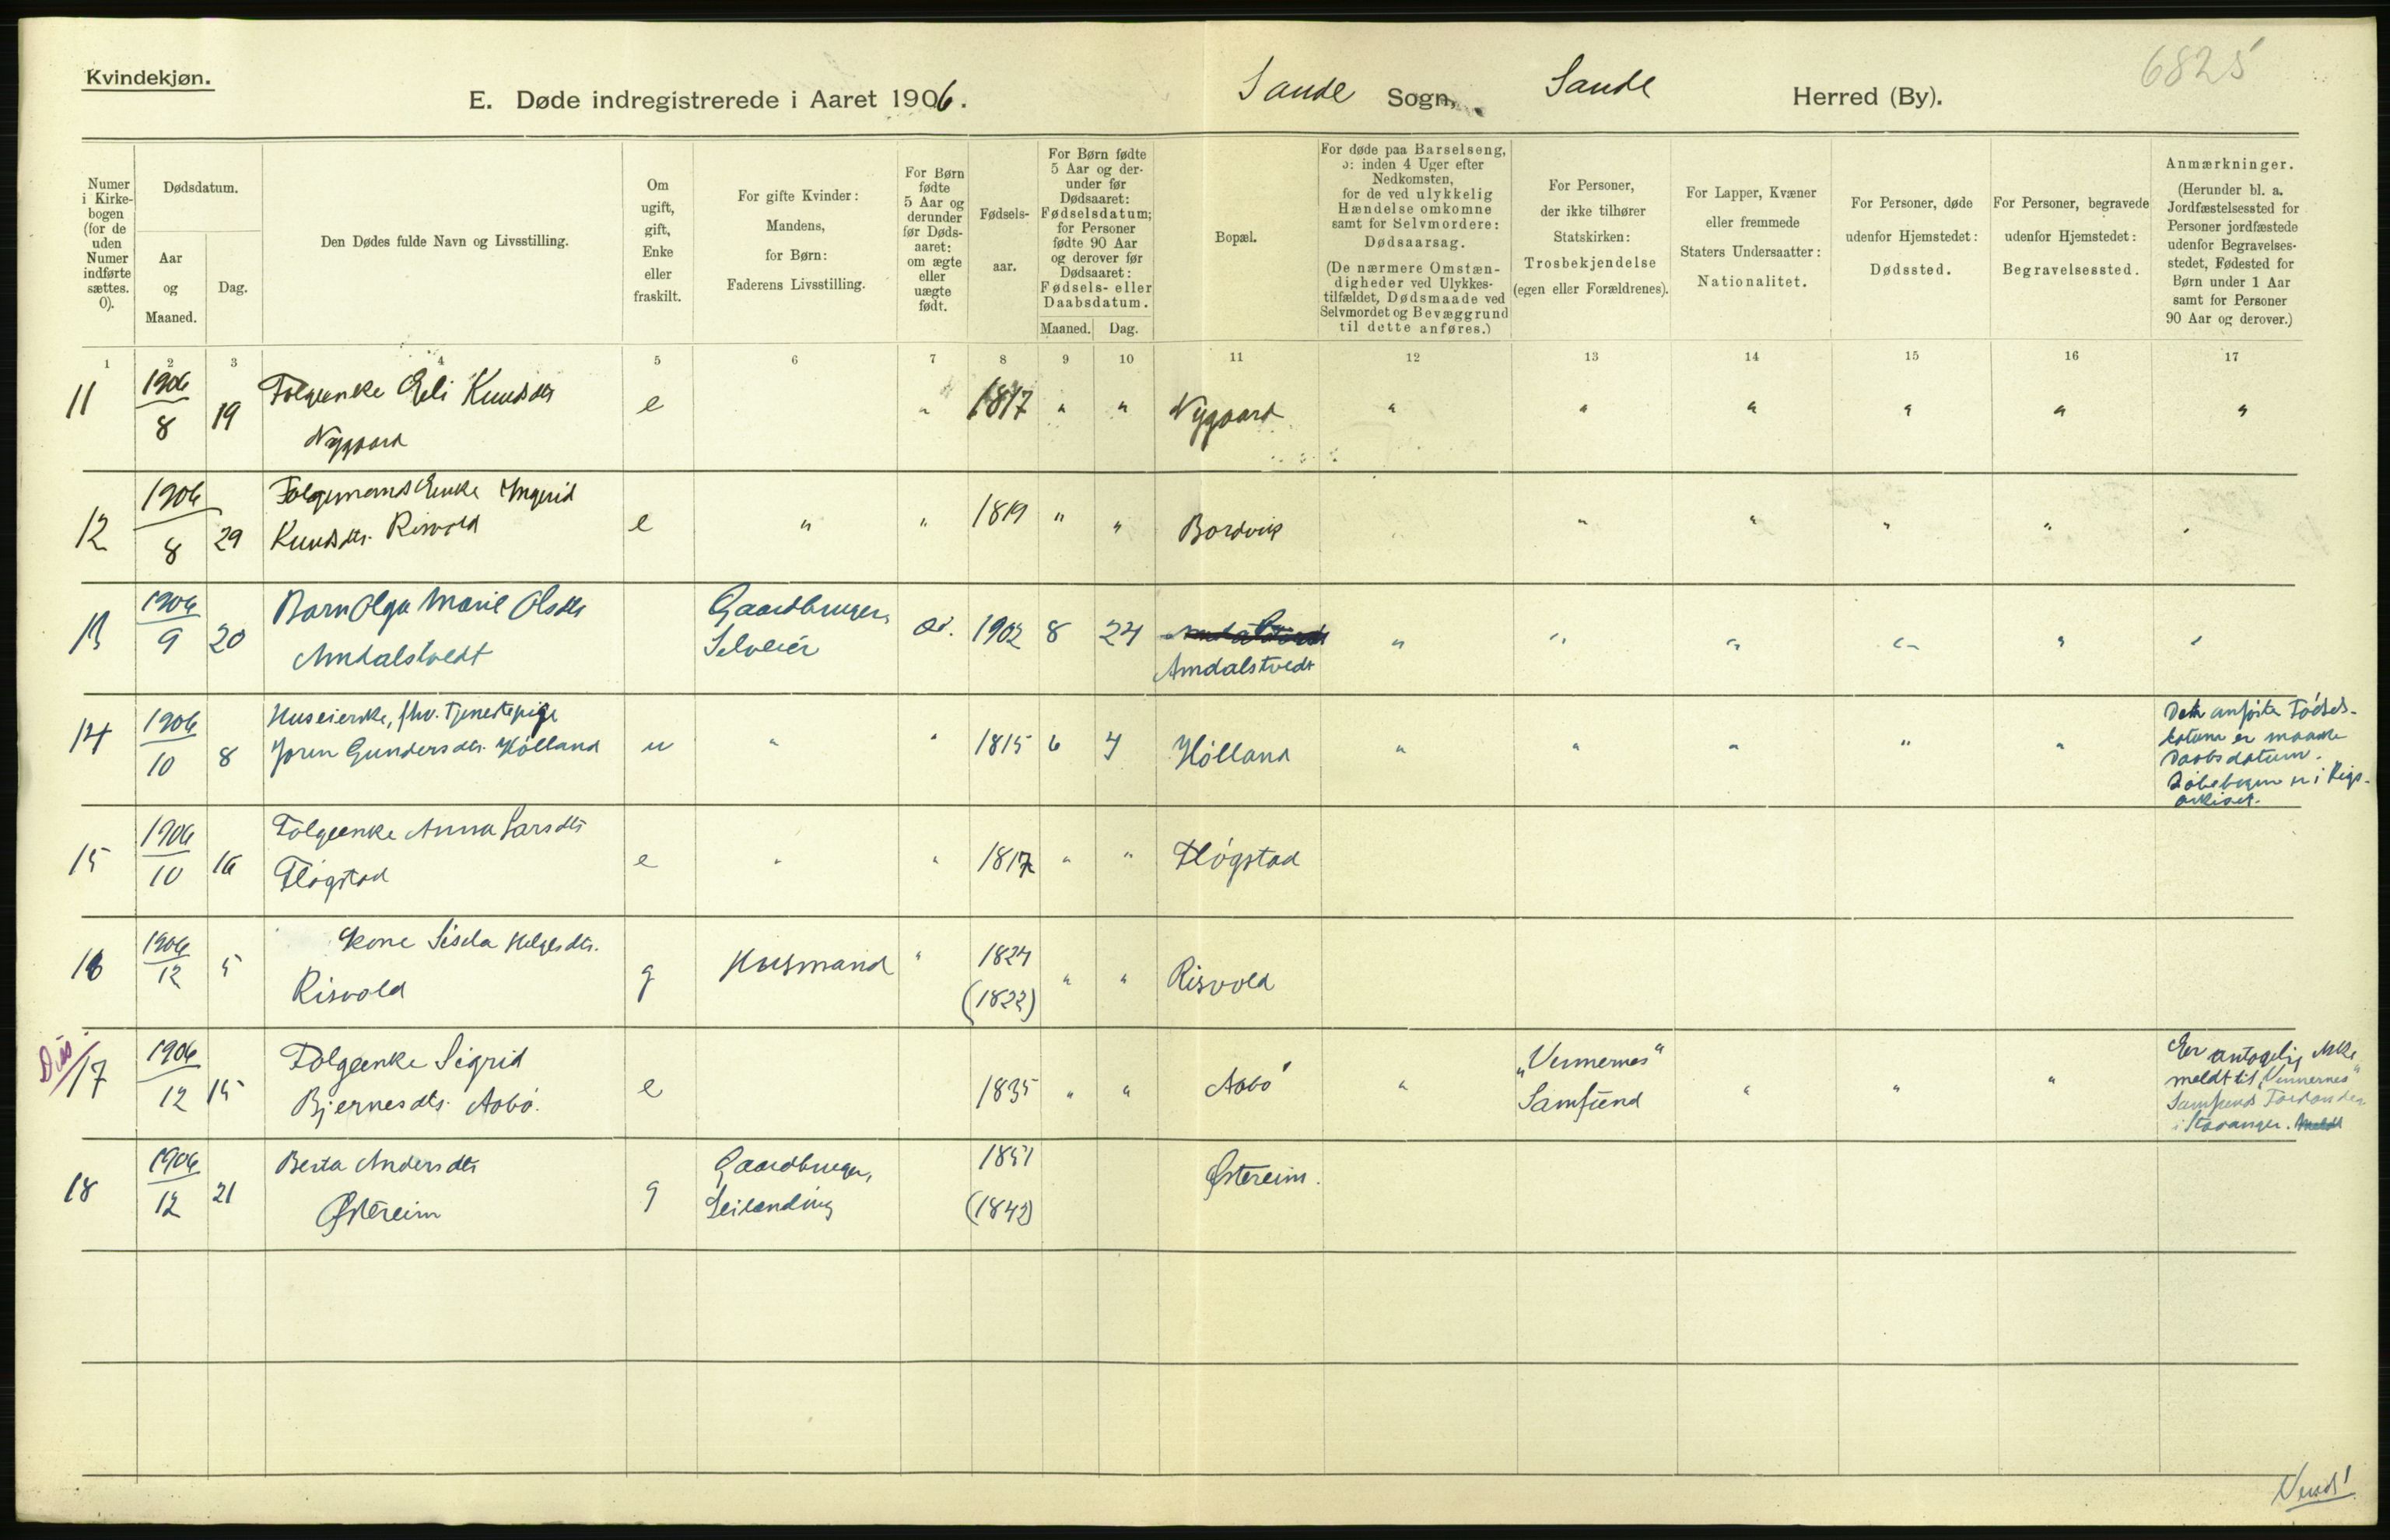 Kvindekjøn.
6825
E. Døde indregistrerede i Aaret 1906.
Sande Sogn, Sande Herred (By).
Numer
i Kirke-
bogen
(for de
uden
Numer
indførte
sættes.
0).
Dødsdatum.
Aar
og
Maaned.
Dag.
Den Dødes fulde Navn og Livsstilling.
Om
ugift,
gift,
Enke
eller
fraskilt.
For gifte Kvinder:
Mandens,
for Børn:
Faderens Livsstilling.
For Børn
fødte
5 Aar og
derunder
før Døds-
aaret:
om ægte
eller
uægte
født.
Fødsels-
aar.
For Børn fødte
5 Aar og der-
under før
Dødsaaret:
Fødselsdatum;
for Personer
fødte 90 Aar
og derover før
Dødsaaret:
Fødsels- eller
Daabsdatum.
Maaned. Dag.
Bopæl.
For døde paa Barselseng,
ɔ: inden 4 Uger efter
Nedkomsten,
for de ved ulykkelig
Hændelse omkomne
samt for Selvmordere:
Dødsaarsag.
(De nærmere Omstæn-
digheder ved Ulykkes-
tilfældet, Dødsmaade ved
Selvmordet og Bevæggrund
til dette anføres.)
For Personer,
der ikke tilhører
Statskirken:
Trosbekjendelse
(egen eller Forældrenes).
For Lapper, Kvæner
eller fremmede
Staters Undersaatter:
Nationalitet.
For Personer, døde
udenfor Hjemstedet:
Dødssted.
For Personer, begravede
udenfor Hjemstedet:
Begravelsessted.
Anmærkninger.
(Herunder bl. a.
Jordfæstelsessted for
Personer jordfæstede
udenfor Begravelses-
stedet, Fødested for
Børn under 1 Aar
samt for Personer
90 Aar og derover.)
1 2 3 4 5 6 7 8 9 10 11 12 13 14 15 16 17
11 1906/8 19 Folgeenke Eli Knudsdtr e " 1817 " " Nygaard " " " " " "
Nygaard
12 1906/8 29 Folgemands Enke Ingrid
Knudsdtr. Risvold e " " 1819 " " Bordvik " " " " "
13 1906/9 20 Barn Olga Marie Olsdtr Gaardbruger, 1902 8 24
Amdalstvedt Selveier Amdalstvedt " " " " " "
14 1906/10 8 Huseierske, fhv. Tjenestepige
Joren Gundersdtr. Hölland u " " 1815 6 4 Hölland " " " " "
Den anførte Fødsels-
datum er maaske
Daabsdatum.
Døbebogen er i Rigs-
arkivet.
15 1906/10 16 Folgeenke Anna Larsdtr
Flögstad e " " 1817 " " Flögstad
16 1906/12 5 Kone Sisela Helgesdtr.
Risvold g Husmand " 1824 (1822) " " Risvold
Dis/17 1906/12 15 Folgeenke Sigrid
Bjernesdtr. Aabö. e 1835 " " Aabö " "Vennernes"
Samfund " " "
Er antagelig ikke
meldt til "Vennernes"
Samfunds Forstander
i Stavanger.
18 1906/12 21 Berta Andersdtr g Gaardbruger, 1851 Østereim.
Østereim Leilending (1842)
Vend!